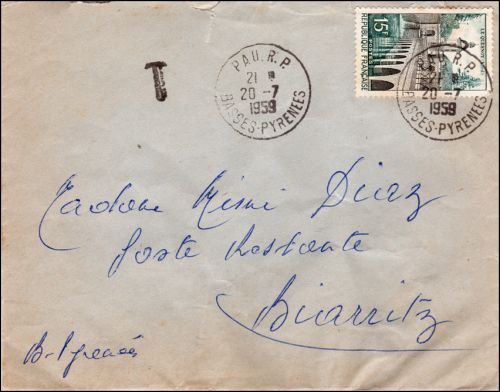 T
PAU.R.P.
21 H
20 -7
1959
BASSES-PYRENEES
REPUBLIQUE FRANÇAISE
15F
POSTES
LE QUESNOY
PAU.R.P.
21 H
20 -7
1959
BASSES-PYRENEES
Madame Mimi Diaz
Poste Restante
Biarritz
B-Pyrenées